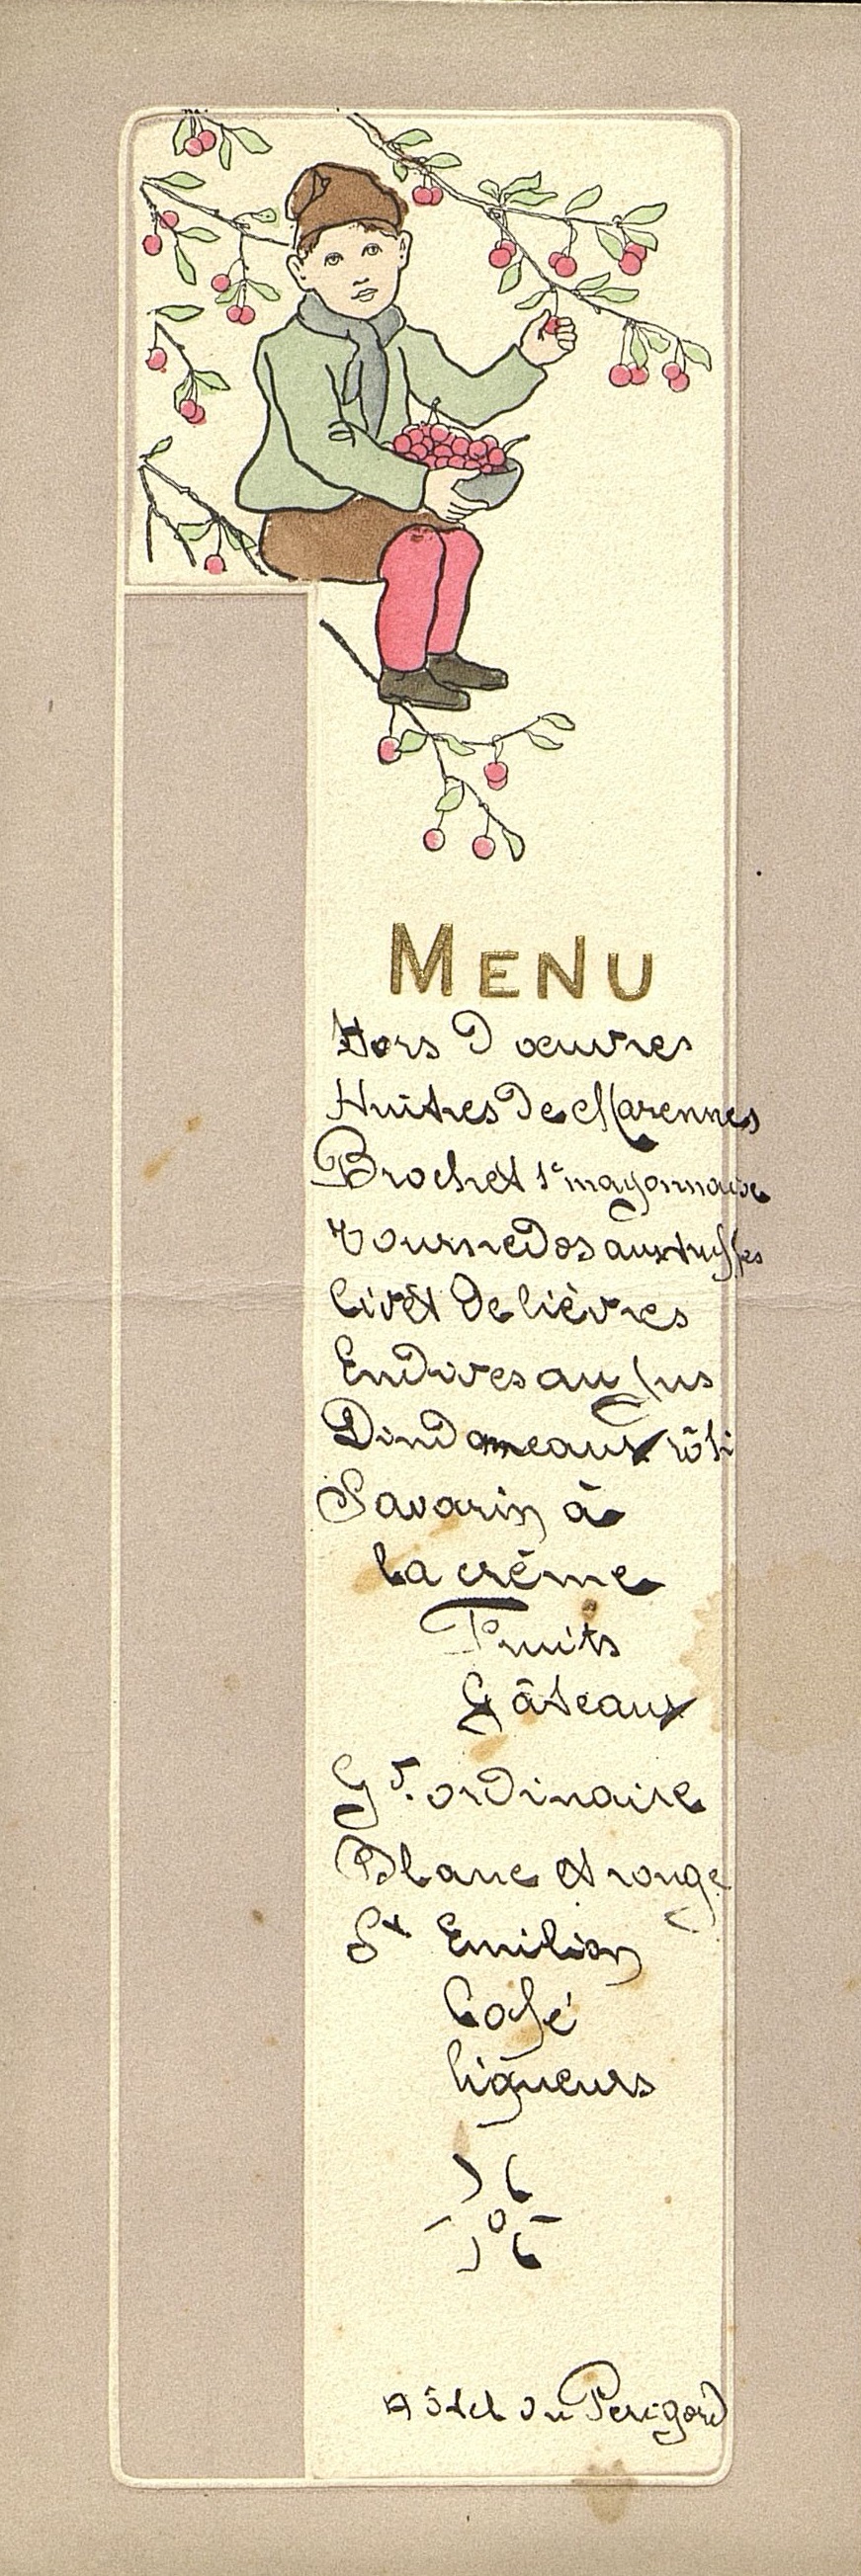 MENU
Hors d'oeuvres
Huîtres de Marennes
Brochet sce mayonnaise
Tournedos aux truffes
Civet de lièvres
Endives au jus
Dindonneaux rôti
Savarin à
la crème
Fruits
Gâteaux
Gd. ordinaire
Blanc et rouge
St Emilion
Café
liqueurs
Hôtel du Périgord